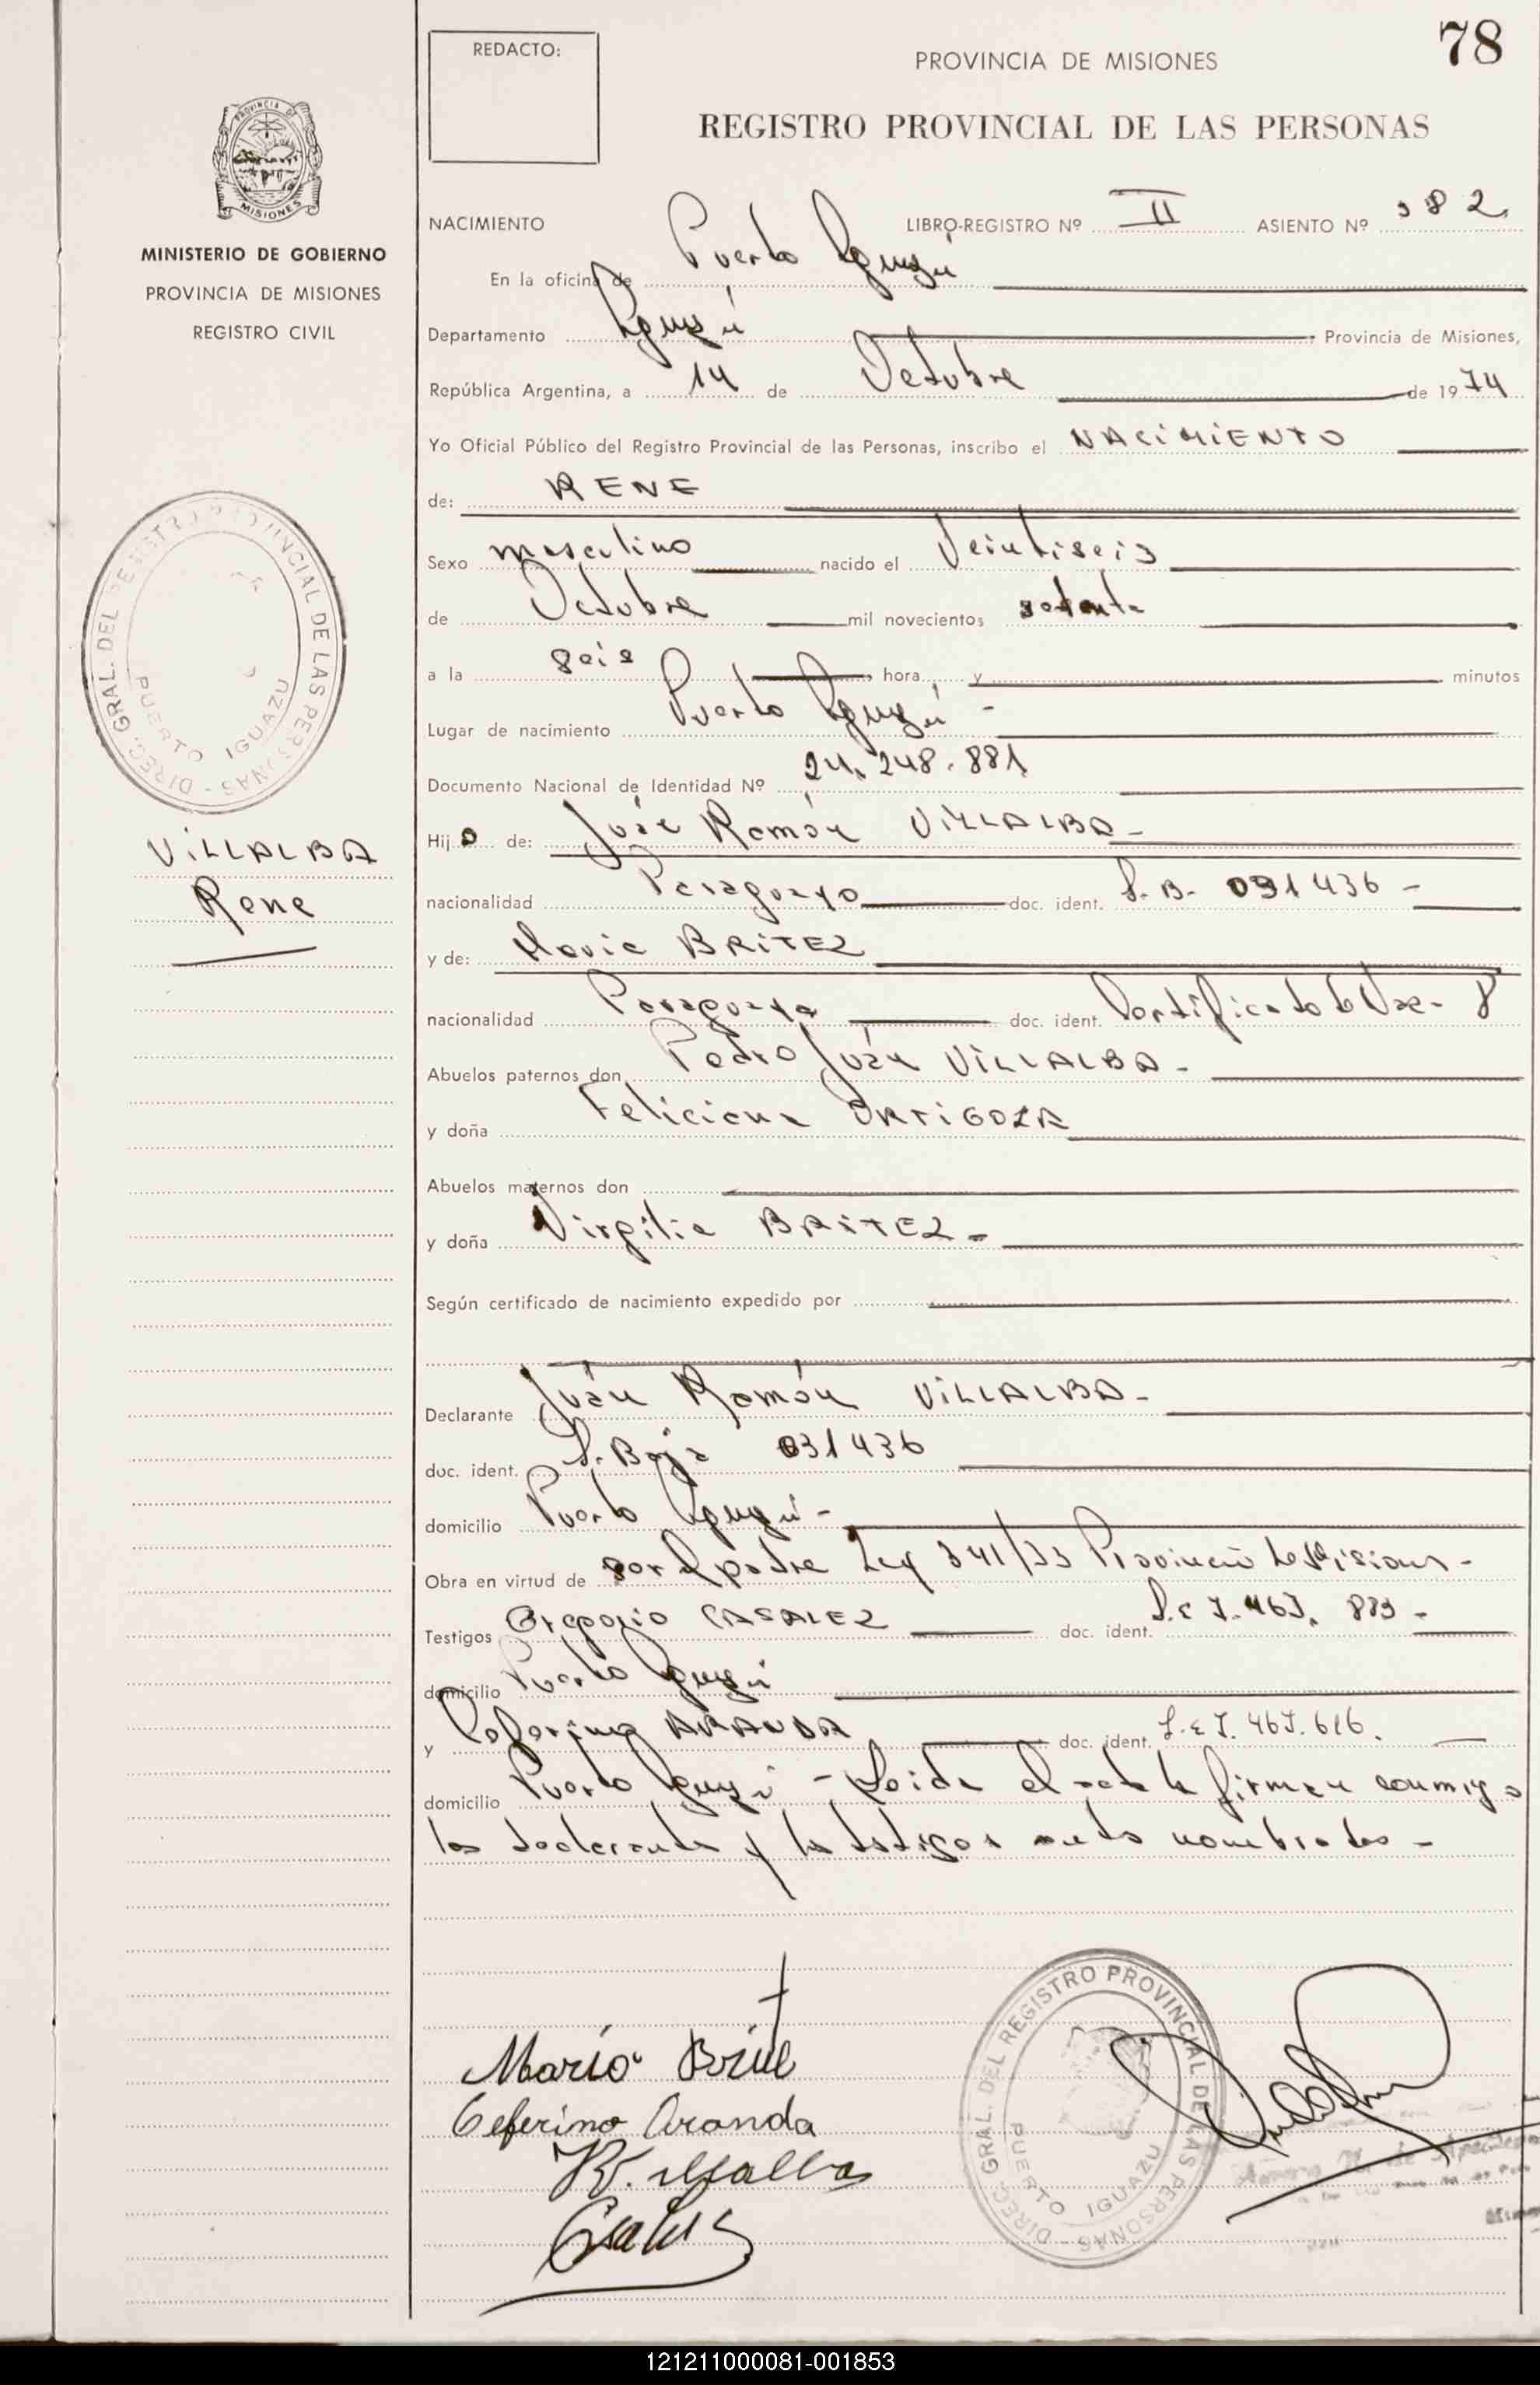 78
REDACTO:
PROVINCIA DE MISIONES
REGISTRO PROVINCIAL DE LAS PERSONAS
PROVINCIA DE
MISIONES
MINISTERIO DE GOBIERNO
PROVINCIA DE MISIONES
REGISTRO CIVIL
NACIMIENTO LIBRO-REGISTRO Nº II ASIENTO Nº 382
En la oficina de Puerto Iguazú
Departamento Iguazú Provincia de Misiones,
República Argentina, a 14 de Octubre de 1974
Yo Oficial Público del Registro Provincial de las Personas, inscribo el NACIMIENTO
de: RENE
Sexo masculino nacido el Veintiseis
de Octubre mil novecientos setenta
a la seis hora y minutos
Lugar de nacimiento Puerto Iguazú -
Documento Nacional de Identidad Nº 24.248.881
DIREC. GRAL. DEL REGISTRO PROVINCIAL DE LAS PERSONAS -
PUERTO IGUAZU
VILLALBA
Rene
Hijo de: Ramón VILLALBA -
nacionalidad Paraguayo doc. ident. 091436 -
y de: BRITEZ
nacionalidad Paraguaya doc. ident. Certificado de
Abuelos paternos don Pedro Juán VILLALBA -
y doña Feliciana ORTIGOZA
Abuelos maternos don
y doña Virgilia BRITEZ -
Según certificado de nacimiento expedido por
Declarante Juán Ramón VILLALBA -
doc. ident. 031436
domicilio Puerto Iguazú -
Obra en virtud de ser el padre Ley Provincia de Misiones -
Testigos Gregorio CASALEZ doc. ident.
domicilio Puerto Iguazú
y Ceferino ARANDA doc. ident.
domicilio Puerto Iguazú - Leida el acta la firman conmigo
los declarante y los testigos nombrados -
Mario
Ceferino Aranda
DIREC. GRAL. DEL REGISTRO PROVINCIAL DE LAS PERSONAS -
PUERTO IGUAZU
121211000081-001853